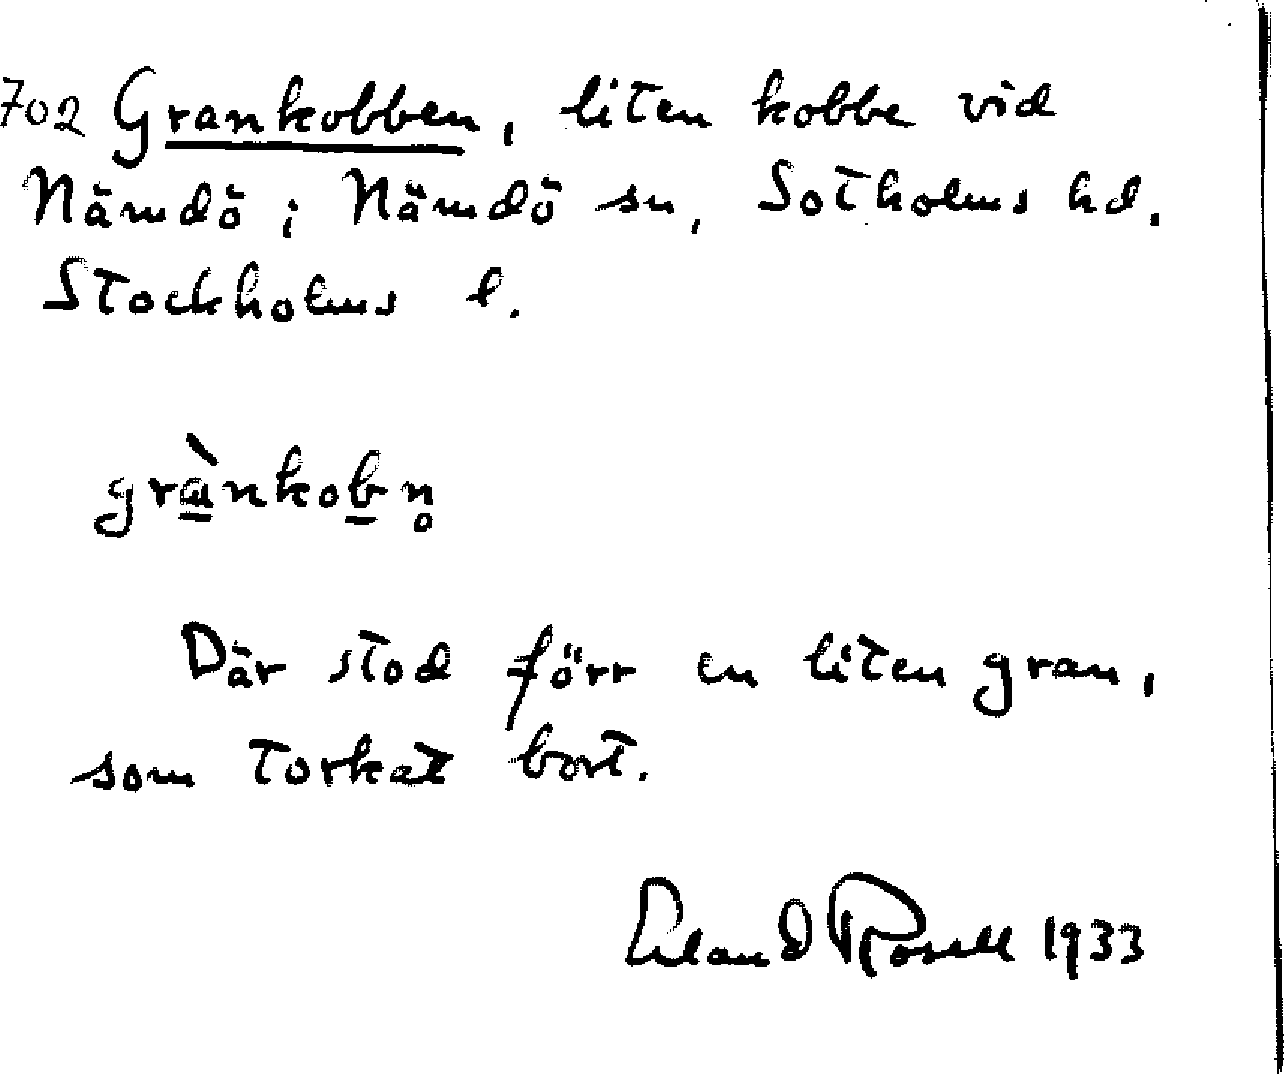 702 Grankobben, liten kobbe vid
Nämdö i Nämdö sn, Sotholms hd.
Stockholms l.
grὰnkobn̥
Där stod förr en liten gran,
som torkat bort.
Erland Rosell 1933